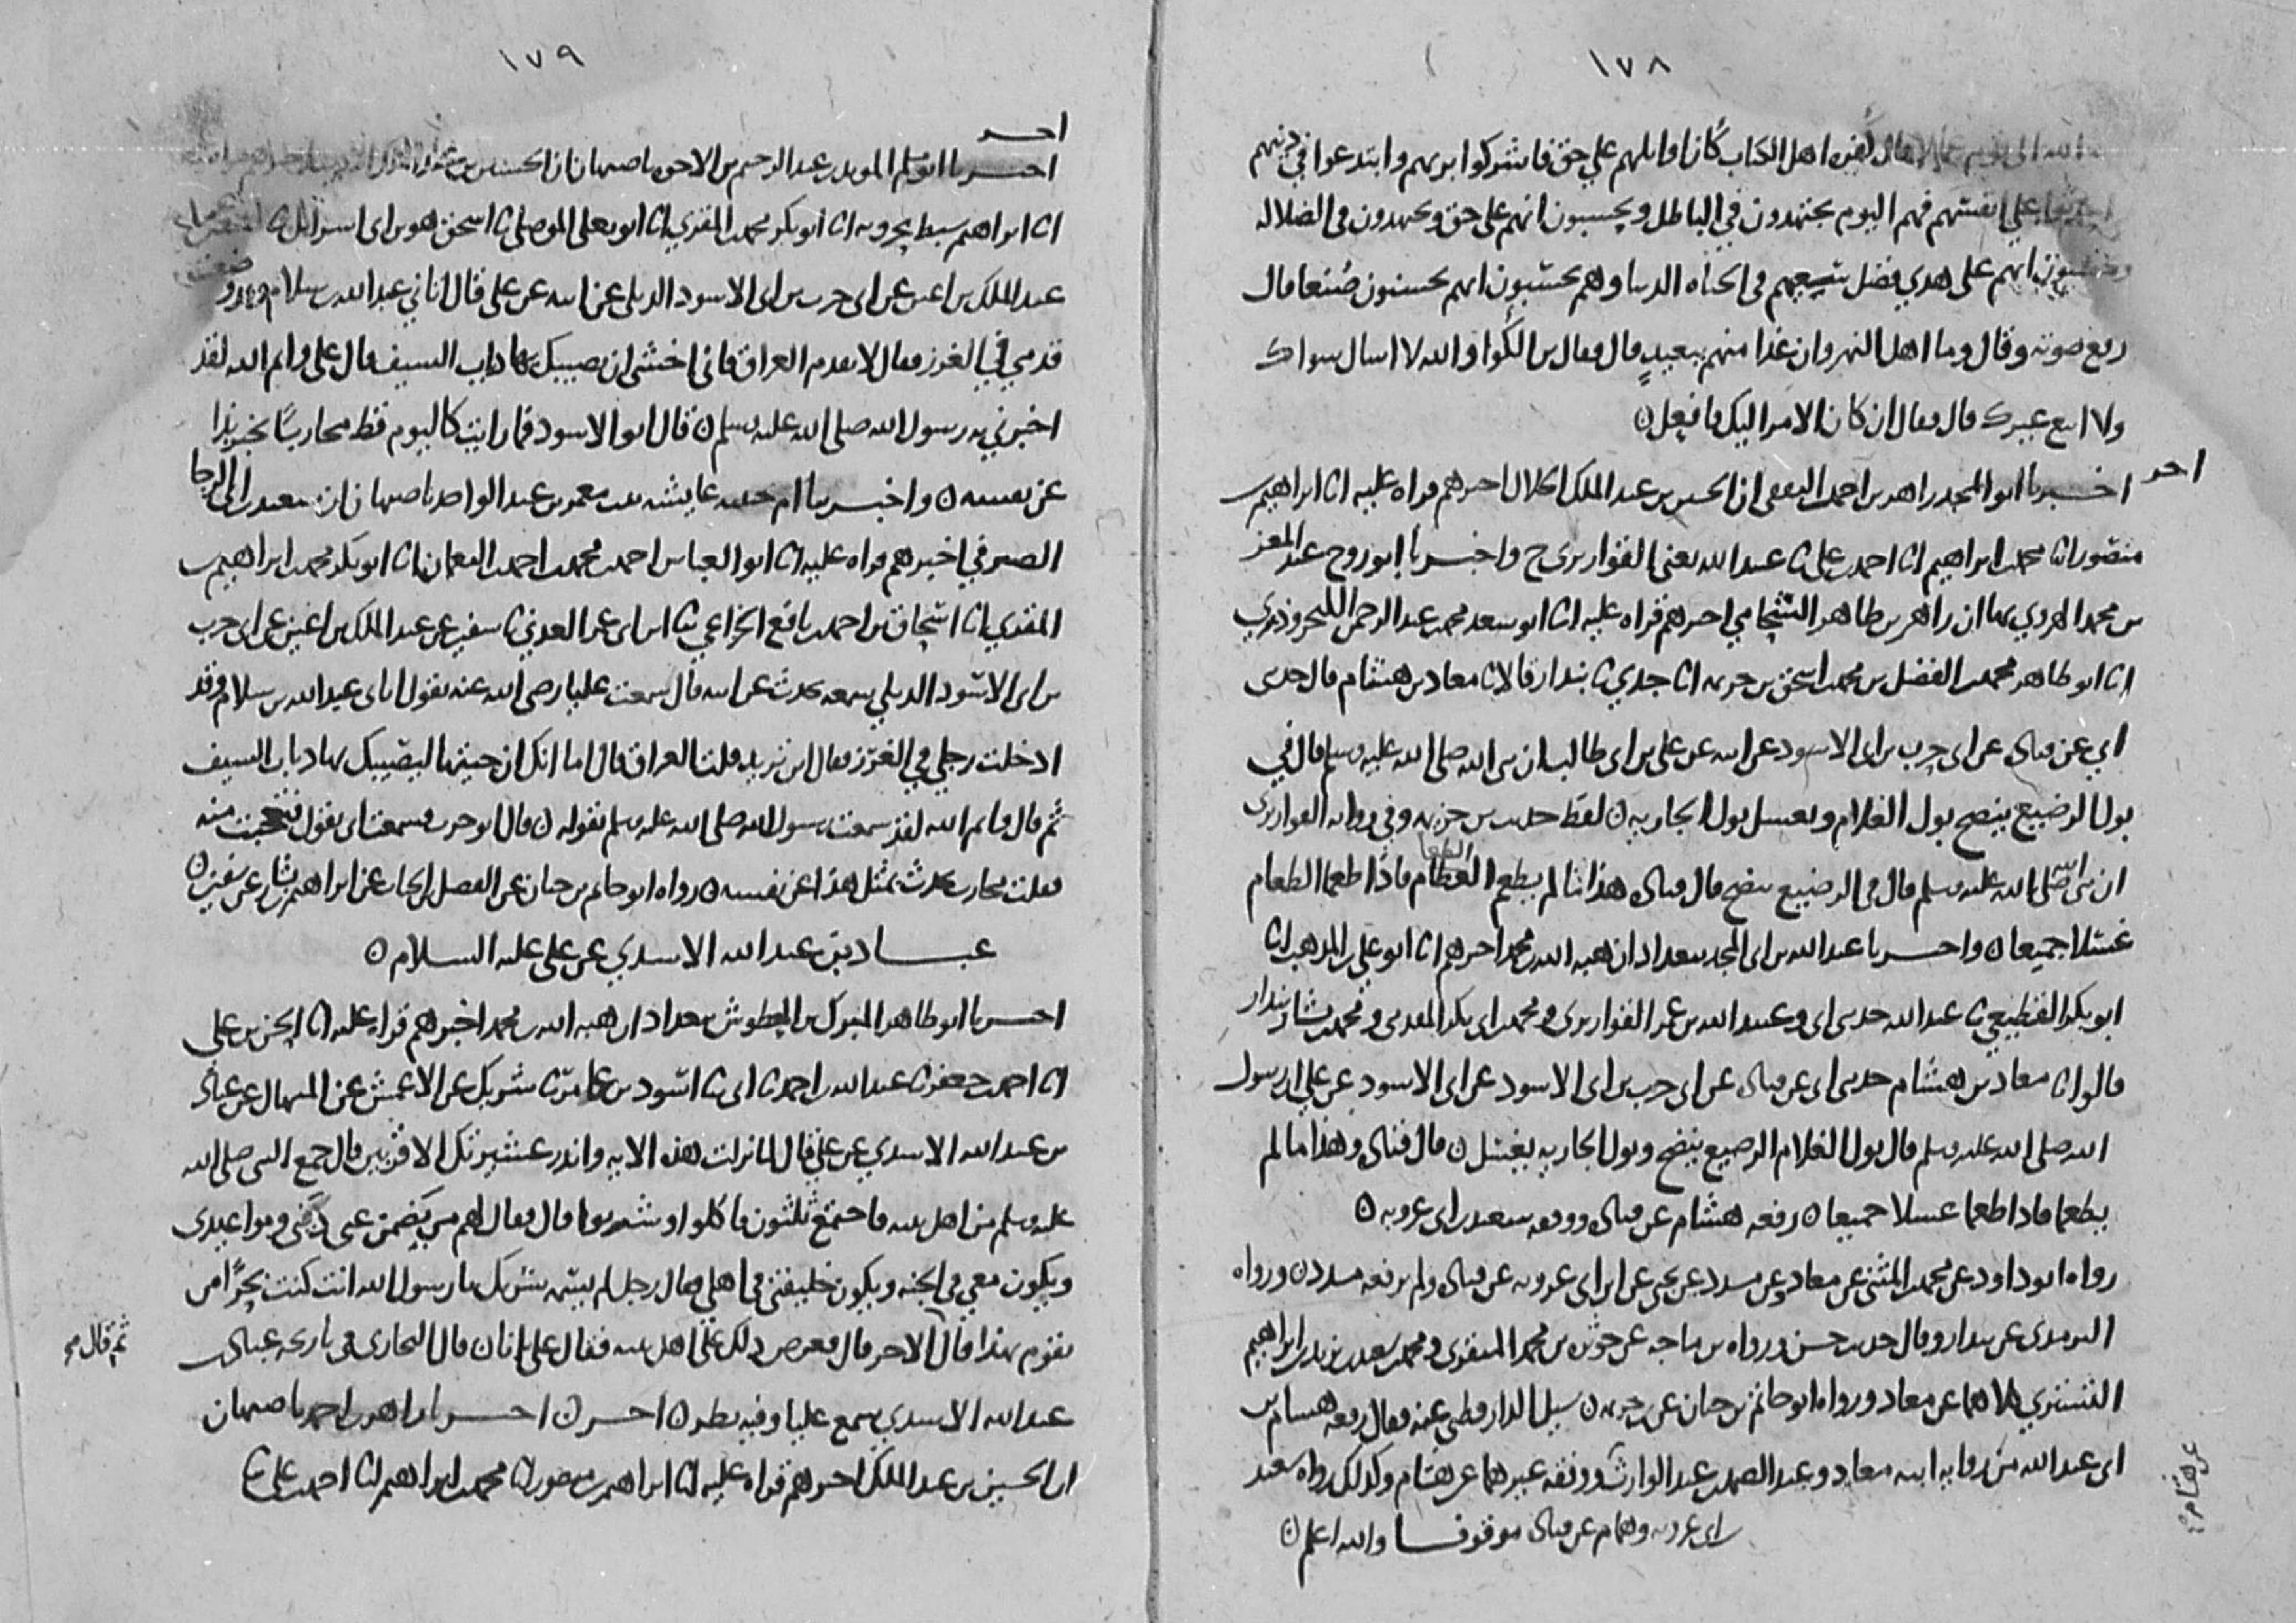 ١٧٨
اهل الكتاب كان اوايلهم على حق فاشركوا بربهم وابتدعوا في دينهم
على انفسهم فهم اليوم يجتهدون في الباطل ويحسبون انهم على حق ويجتهدون في الضلالة
انهم على هدي فضل سعيهم في الحياه الدنيا وهم يحسبون انهم يحسنون صنعا قال
رفع صوته وقال وما اهل النهروان غدا منهم ببعيد قال فقال بن الكوا والله لا اسال سواك
ولا اتبع غيرك قال فقال ان كان الامر اليك فافعل ن
احر
اخبرنا ابو المجد زاهر بن احمد الثقفي ان الحسين بن عبد الملك الخلال اخبرهم قراه عليه انا ابراهيم بن
منصور انا محمد بن ابراهيم انا احمد بن علي نا عبيد الله يعني القواريري ح واخبرنا ابو روح عبد المعز
بن محمد الهروي بها ان زاهر بن طاهر الشحامي اخبرهم قراه عليه انا ابو سعد محمد بن عبد الرحمن الكنجروذي
انا ابو طاهر محمد بن الفضل بن محمد بن اسحق بن خزيمه انا جدي نا بندار قالا نا معاذ بن هشام قال حدثني
ابي عن قتاده عن ابي حرب بن ابي الاسود عن ابيه عن علي بن ابي طالب ان نبي الله صلى الله عليه وسلم قال في
بول الرضيع ينضح بول الغلام ويغسل بول الجاريه ن لفظ حديث بن خزيمه وفي روايه القواريري
ان نبي الله صلى الله عليه وسلم قال في الرضيع ينضح قال قتاده هذا ما لم يطعم الطعام فاذا طعما الطعام
غسلا جميعا ن واخبرنا عبد الله بن ابي المجد ببغداد ان هبه الله بن محمد اخبرهم انا ابو علي بن المذهب انا
ابو بكر القطيعي نا عبد الله حدثني ابي وعبيد الله بن عمر القواريري ومحمد بن ابي بكر المقدمي ومحمد بن بشار بندار
قالوا نا معاذ بن هشام حدثني ابي عن قتاده عن ابي حرب بن ابي الاسود عن ابي الاسود عن علي ان رسول
الله صلى الله عليه وسلم قال بول الغلام الرضيع ينضح وبول الجاريه يغسل ن قال قتاده وهذا ما لم
يطعما فاذا طعما غسلا جميعا ن رفعه هشام عن قتاده ووقفه سعيد بن ابي عروبه ن
رواه ابو داود عن محمد بن المثنى عن معاذ وعن مسدد عن يحيى عن ابن ابي عروبه عن قتاده ولم يرفعه مسدد ن ورواه
الترمذي عن بندار وقال حديث حسن ورواه بن ماجه عن حوثره بن محمد المنقري ومحمد بن سعيد بن يزيد بن ابراهيم
التستري كلاهما عن معاذ ورواه ابو حاتم بن حبان عن بن خزيمه ن سيل الدارقطني عنه فقال رفعه هشام بن
ابي عبد الله من روايه ابنه معاذ وعبد الصمد بن عبد الوارث ووقفه غيرهما عن هشام وكذلك رواه سعيد
عن هشام
بن ابي عروبه وهمام عن قتاده موقوفا والله اعلم ن
١٧٩
احر
اخبرنا ابو مسلم المويد بن عبد الرحيم بن الاخوه باصبهان ان الحسين بن عبد الملك
انا ابراهيم سبط بحرويه انا ابو بكر محمد بن المقري انا ابو يعلى الموصلي نا اسحق هو بن ابي اسرائيل نا
عبد الملك بن اعين عن ابي حرب بن ابي الاسود الديلي عن ابيه عن علي قال اتاني عبد الله بن سلام وقد وضعت
قدمي في الغرز فقال لا تقدم العراق فاني اخشى ان يصيبك بها ذباب السيف قال علي وايم الله لقد
اخبرني به رسول الله صلى الله عليه وسلم ن قال ابو الاسود فما رايت كاليوم قط محاربا يخبر بذا
عن نفسه ن واخبرتنا ام حبيبه عايشه بنت معمر بن عبد الواحد باصبهان ان سعيد بن ابي الرجا
الصيرفي اخبرهم قراه عليه انا ابو العباس احمد بن محمد بن احمد بن النعمان انا ابو بكر محمد بن ابراهيم بن
المقري انا اسحاق بن احمد بن نافع الخزاعي نا ابن ابي عمر العدني نا سفين عن عبد الملك بن اعين عن ابي حرب
بن ابي الاسود الديلي سمعه يحدث عن ابيه قال سمعت عليا رضي الله عنه يقول اتاني عبد الله بن سلام وقد
ادخلت رجلي في الغرز فقال اين تريد قلت العراق قال اما انك ان جيتها ليصيبك بها ذباب السيف
ثم قال وايم الله لقد سمعت رسول الله صلى الله عليه وسلم يقوله ن قال ابو حرب فسمعت ابي يقول فتعجبت منه
فقلت محارب يحدث بمثل هذا عن نفسه ن رواه ابو حاتم بن حبان عن الفضل بن الحباب عن ابراهيم بن بشار عن سفين ن
عباد بن عبد الله الاسدي عن علي عليه السلام ن
اخبرنا ابو طاهر المبارك بن المعطوش ببغداد ان هبه الله بن محمد اخبرهم قراه عليه انا الحسن بن علي
انا احمد بن جعفر نا عبد الله بن احمد نا ابي نا اسود بن عامر نا شريك عن الاعمش عن المنهال عن عباد
بن عبد الله الاسدي عن علي قال لما نزلت هذه الايه وانذر عشيرتك الاقربين قال جمع النبي صلى الله
عليه وسلم من اهل بيته فاجتمع ثلثون فاكلوا وشربوا قال فقال لهم من يضمن عني ديني ومواعيدي
ويكون معي في الجنه ويكون خليفتي في اهلي فقال رجل لم يسمه شريك يا رسول الله انت كنت بحرا من
يقوم بهذا قال ثم قال الاخر قال فعرض ذلك على اهل بيته فقال علي انا ن قال البخاري في تاريخه عباد بن
عبد الله الاسدي سمع عليا وفيه نظر ن اخر ن اخبرنا زاهر بن احمد باصبهان
ان الحسين بن عبد الملك اخبرهم قراه عليه انا ابراهيم بن منصور انا محمد بن ابراهيم انا احمد بن علي نا